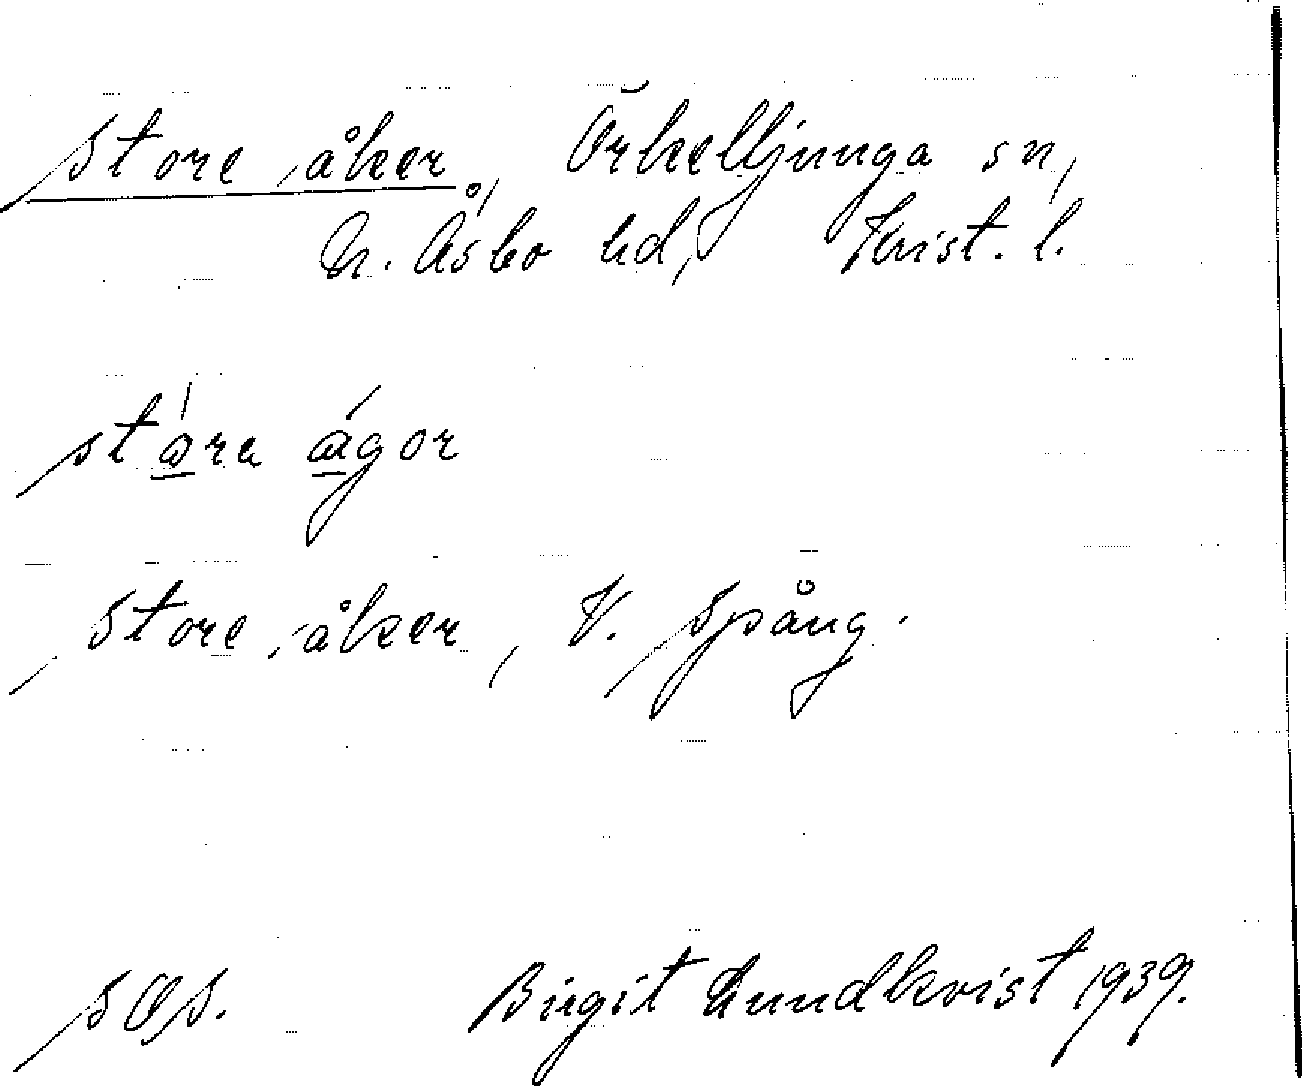 Store åker, Örkelljunga sn,
N. Åsbo hd, Krist. l.
stára ágor
Store åker, V. Spång.
sOs. Birgit Lundkvist 1939.